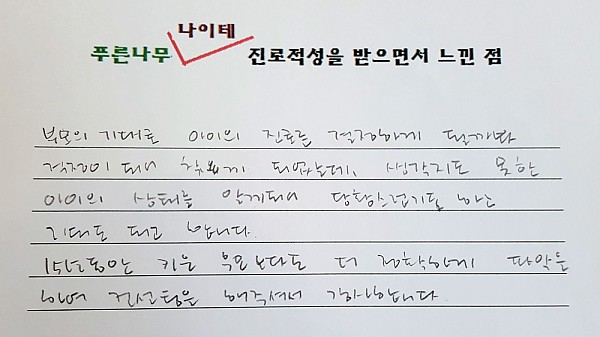 나이테
푸른나무 진로적성을 받으면서 느낀 점
부모의 기대로 아이의 진로를 결정하게 될까봐
걱정이 돼서 찾게 되었는데, 생각지도 못한
아이의 상태를 알게돼서 당황스럽기도 하고
기대도 되고 합니다.
15년동안 키운 부모보다도 더 정확하게 파악을
하여 컨설팅을 해주셔서 감사합니다.